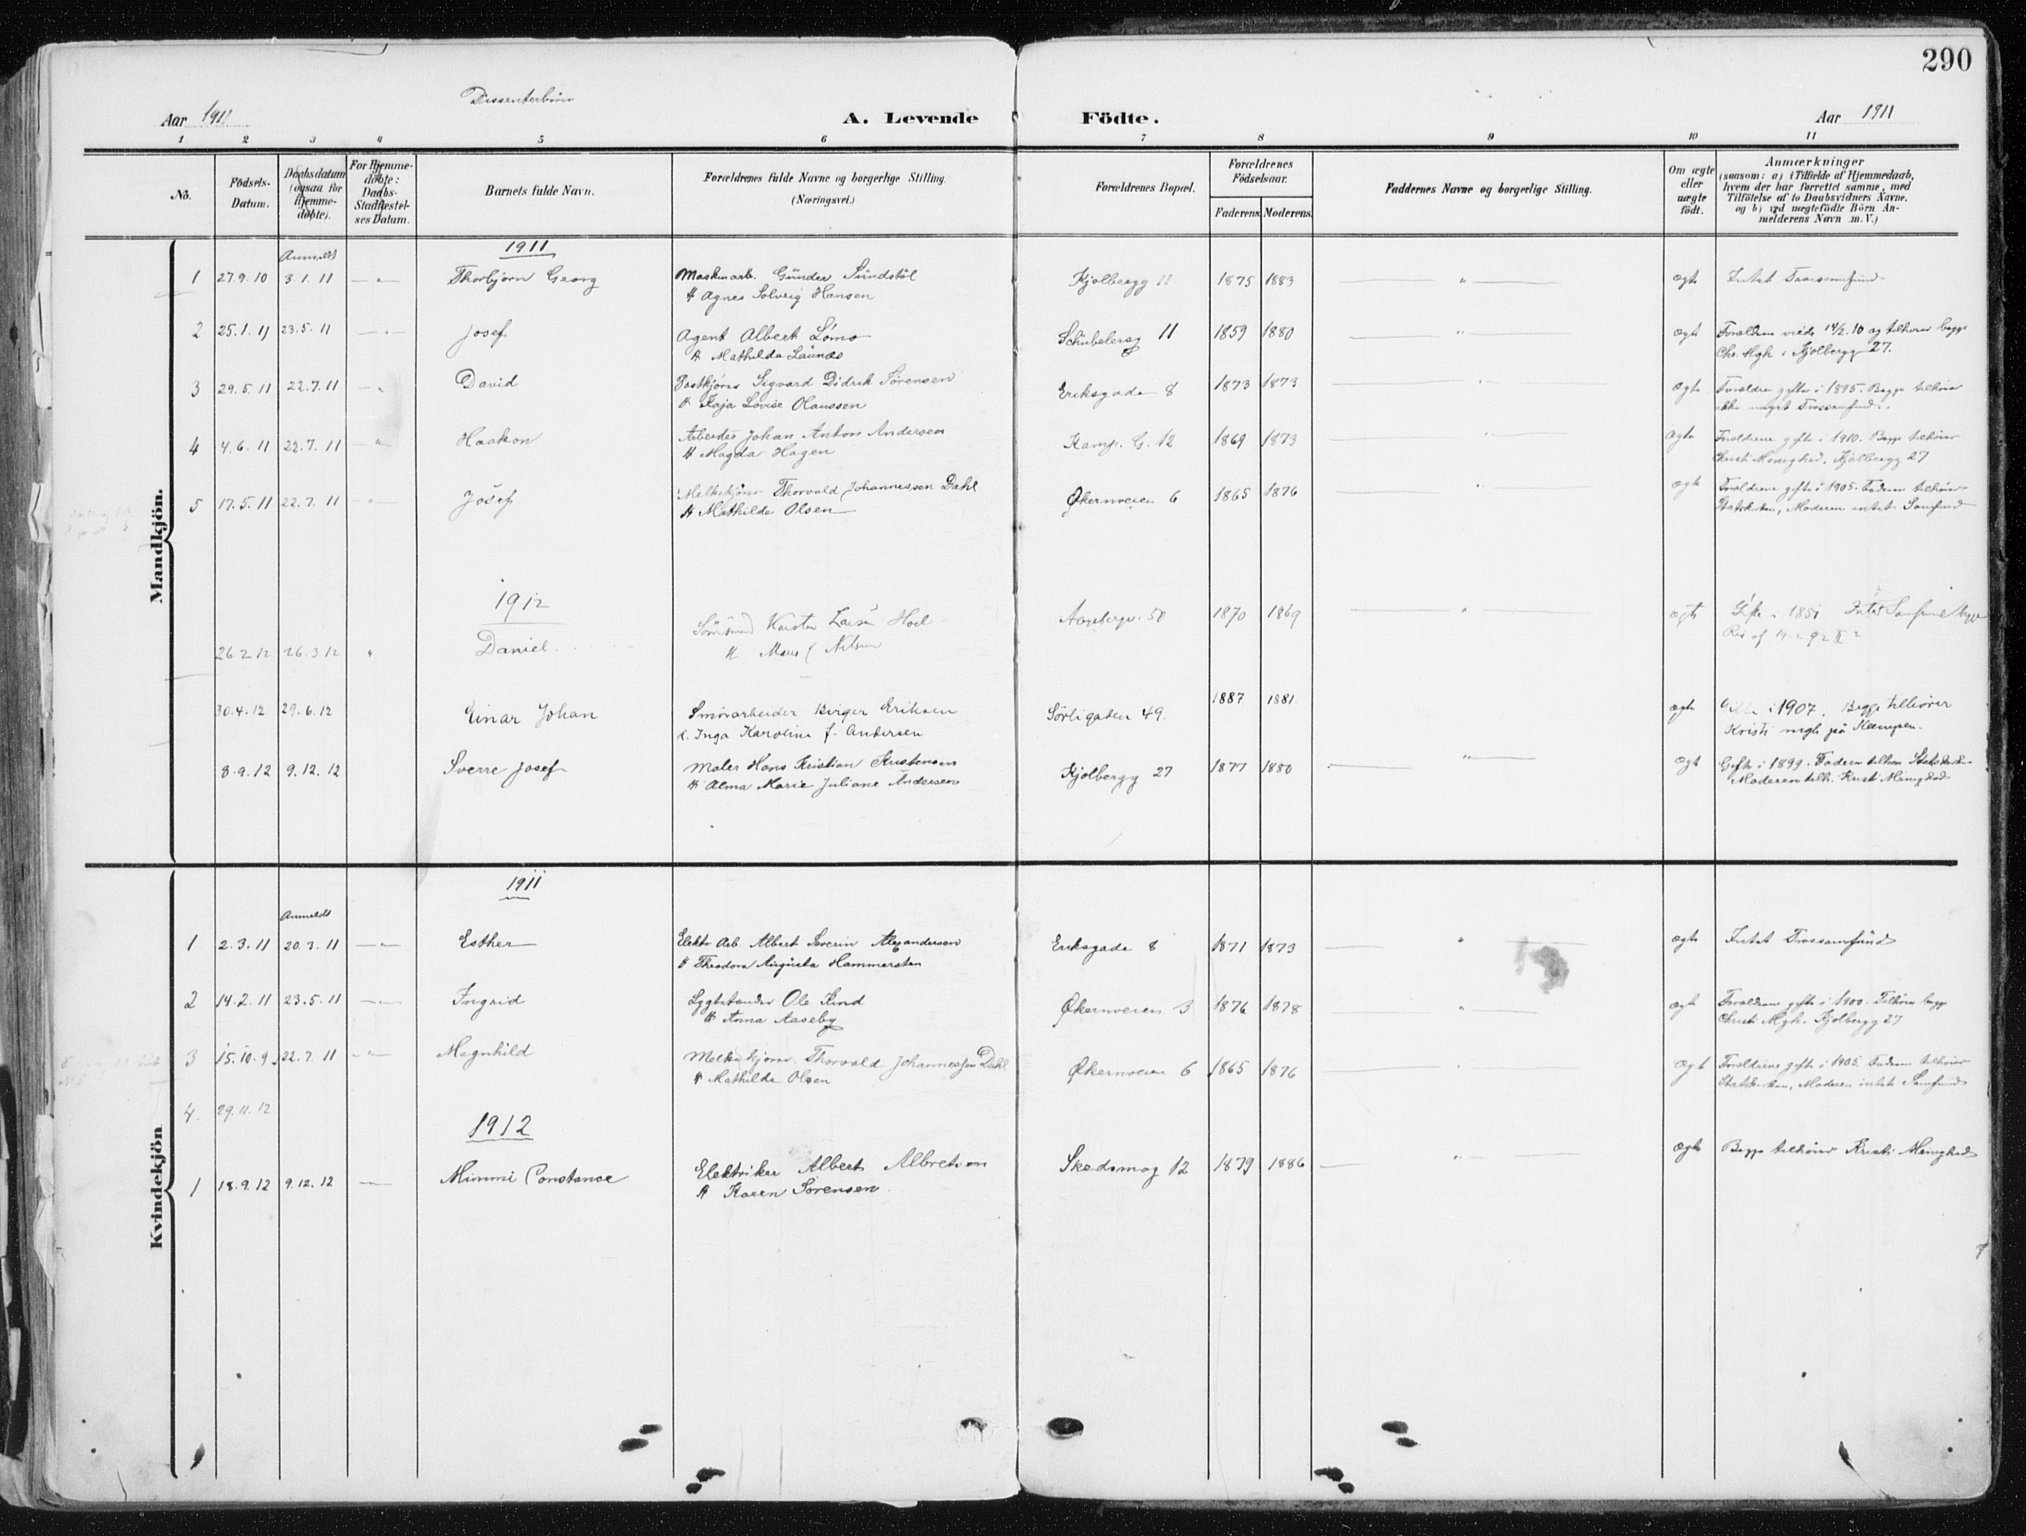 290
Dissenterbörn
Aar 1911 A. Levende Födte. Aar 1911
1 2 3 4 5 6 7 8 9 10 11
No. Födsels-Datum. Daabsdatum (ogsaa for Hjemme-döbte). For Hjemme-döbte: Daabs-Stadfæstel-ses Datum. Barnets fulde Navn. Forældrenes fulde Navne og borgerlige Stilling. (Næringsvei.) Forældrenes Bopæl. Forældrenes Födselsaar. Faderens. Moderens. Faddernes Navne og borgerlige Stilling. Om ægte eller uægte födt. Anmærkninger (saasom: a) i Tilfælde af Hjemmedaab, hvem der har forrettet samme, med Tilföielse af to Daabsvidners Navne. og b) ved uægtefödte Börn An-melderens Navn m. V.)
Mandkjön.
1911
Anmeldt
1 27.9.10 3.1.11 — " — Thorbjørn Georg Maskinarb. Günder Sündstöl Kjølbergg 11 1875 1883 — " — ægte Intet Trossamfund
H Agnes Solveig Hansen
2 25.1.11 23.5.11 — " — Josef Agent Albert Lømo Schübelersg 11 1859 1880 — " — ægte Forældrene viede 14/2.10 og tilhører begge
H Mathilde Launes Chr. Mgh. i Kjølbergg 27.
3 29.5.11 22.7.11 — " David Postkjører Sigvard Didrik Sörensen Eriksgade 8 1873 1873 — " — ægte Forældrene gifte i 1895. Begge tilhører
H Kaja Lovise Olaussen ikke noget Trossamfund.
4 4.6.11 22.7.11 — " Haakon Arbeider Johan Anton Andersen Kampe G. 12 1869 1873 — " — ægte Forældrene gifte i 1910. Begge tilhører
H Magda Hagen Christi Menighed, Kjølbergg 27
5 17.5.11 22.7.11 — " — Josef Melkekjører Thorvald Johannessen Dahl Økernveien 6 1865 1876 — " — ægt Forældrene gifte i 1905. Faderen tilhører
H Mathilde Olsen Statskirken, Moderen intet Samfund
1912
26.2.12 26.3.12 " Daniel Karsten Hoel 50 1870 1869 — " — ægte Intet Samfund begge
H Nilsen
30.4.12 29.6.12 Einar Johan Smörarbeider Birger Eriksen Sörligaden 49. 1887 1881 ægte i 1907. Begge tilhører
Inga Karoline f. Andersen Kristi mgh på Kampen.
8.9.12 9.12.12 Sverre Josef Maler Hans Kristian Kristensen Kjølbergg 27 1877 1880 — " — ægt Gifte i 1899. Faderen tilhører Statsk.
H Alma Marie Juliane Andersen Moderen tilh. Kristi Menighed
Kvindekjön
1911
Anmeldt
1 2.3.11 20.3.11 — " — Esther Elektr Arb. Albert Severin Alexandersen Eriksgade 8 1871 1873 — " — ægte Intet Trossamfünd
H Theodora Augusta Hammersten
2 14.2.11 23.5.11 — " — Ingrid Lygtetænder Ole Lind Økernveien 3 1876 1878 — " — ægt Forældrene gifte i 1900. Tilhører begge
H Anna Aaseby Christi Mgh. Kjølbergg 27
3 15.10.9 22.7.11 — " — Magnhild Melkekjører Thorvald Johannessen Dahl Økernveien 6 1865 1876 — " — ægt Forældrene gifte i 1905. Faderen tilhører
H Mathilde Olsen Statskirken, Moderen intet Samfund
4. 29.11.12
1912
1 18.9.12 9.12.12 — Mimmi Constance Elektriker Albert Albretsen Skedsmog 12 1879 1886 — " — ægte Begge tilhører Kristi Menighed
H Karen Sørensen.